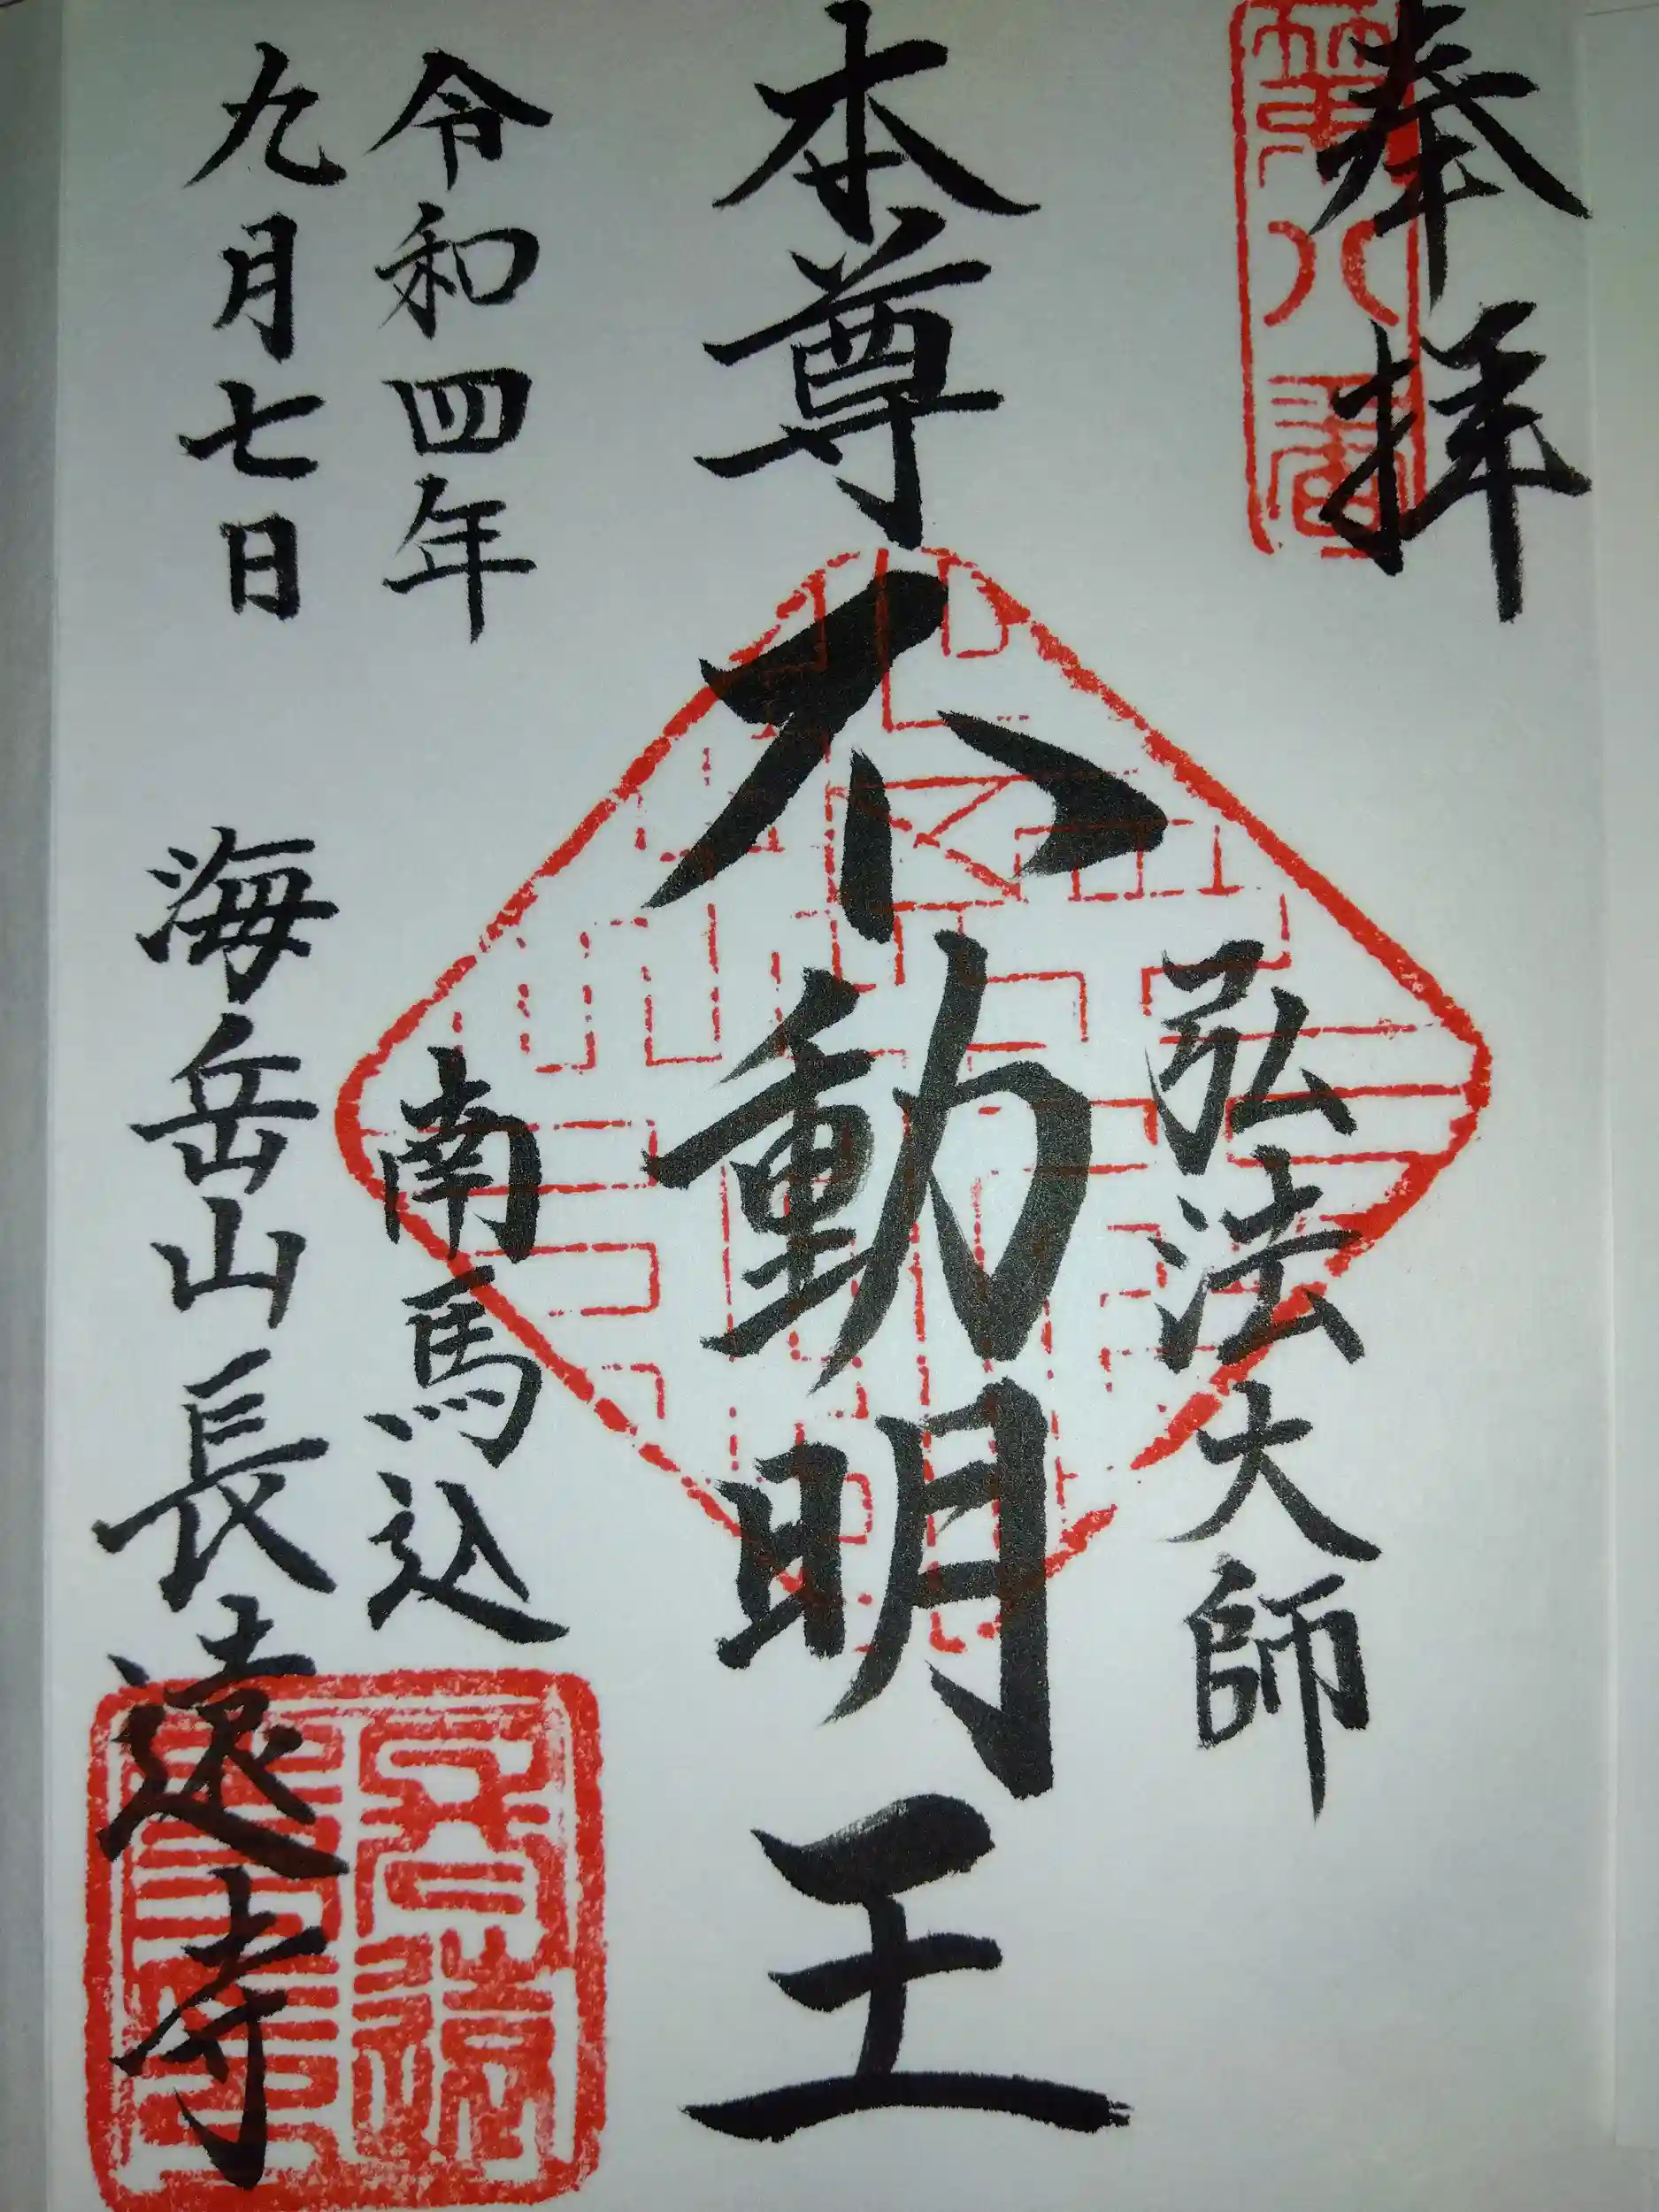 奉拝
弘法大師
本尊不動明王
令和四年
九月七日
南馬込
海岳山長遠寺